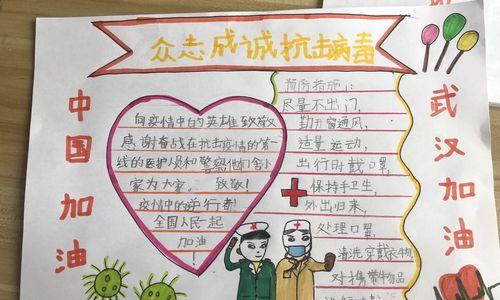 众志成诚抗击病毒
中国加油
向疫情中的英雄致敬
感谢奋战在抗击疫情的第一
线的医护人员和警察他们舍小
家为大家,致敬!
疫情中的逆行者!
全国人民一起
加油!
预防措施:
尽量不出门,
勤开窗通风,
适量运动,
出行时戴口罩,
保持手卫生,
外出归来,
处理口罩,
清洗穿戴衣物,
对携带物品
武汉加油